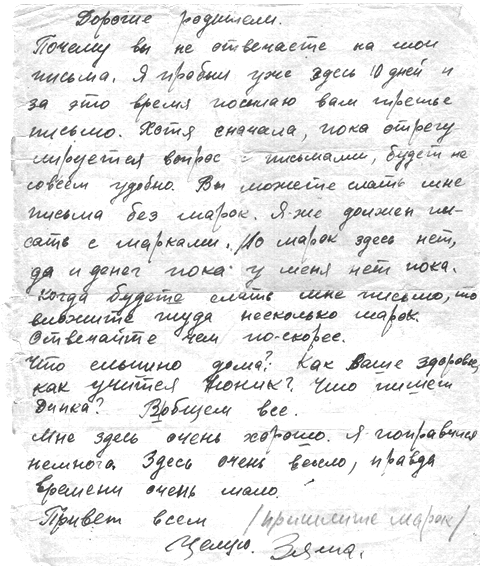 Дорогие родители.
Почему вы не отвечаете на мои
письма. Я пробыл уже здесь 10 дней и
за это время посылаю вам третье
письмо. Хотя сначала, пока отрегу
лируется вопрос с письмами, будет не
совсем удобно. Вы можете слать мне
письма без марок. Я же должен пи-
сать с марками. Но марок здесь нет,
да и денег пока у меня нет пока.
Когда будете слать мне письмо, то
вложите туда несколько марок.
Отвечайте чем по-скорее.
Что слышно дома? Как Ваше здоровье,
как учится Нюник? Что пишет
Динка? Вобщем все.
Мне здесь очень хорошо. Я поправился
немного. Здесь очень весело, правда
времени очень мало.
Привет всем /пришлите марок/
Целую. Зяма.